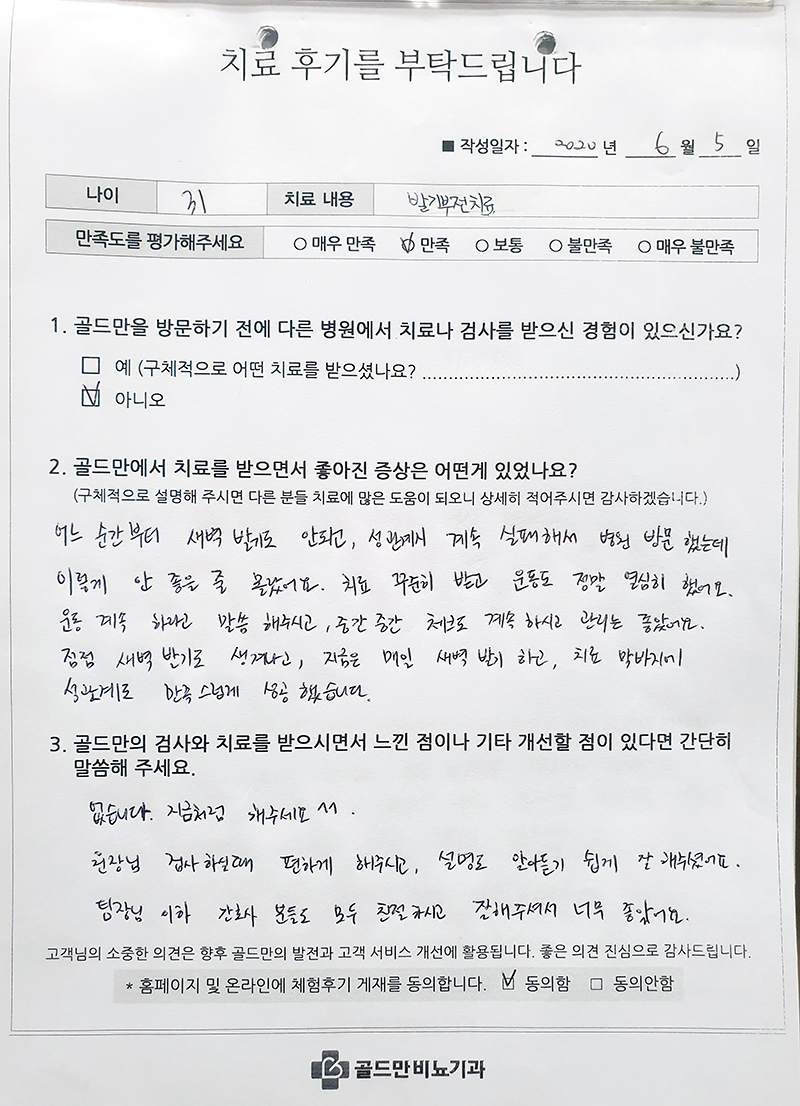 치료 후기를 부탁드립니다
■ 작성일자 : 2020 년 6 월 5 일
나이 31 치료 내용 발기부전치료
만족도를 평가해주세요 ○ 매우 만족 ○ 만족 ○ 보통 ○ 불만족 ○ 매우 불만족
1. 골드만을 방문하기 전에 다른 병원에서 치료나 검사를 받으신 경험이 있으신가요?
□ 예 (구체적으로 어떤 치료를 받으셨나요? ........................................................)
☑ 아니오
2. 골드만에서 치료를 받으면서 좋아진 증상은 어떤게 있었나요?
(구체적으로 설명해 주시면 다른 분들 치료에 많은 도움이 되오니 상세히 적어주시면 감사하겠습니다.)
어느 순간부터 새벽 발기도 안되고, 성관계시 계속 실패해서 병원 방문 했는데
이렇게 안 좋은 줄 몰랐어요. 치료 꾸준히 받고 운동도 정말 열심히 했어요.
운동 계속 하라고 말씀 해주시고, 중간 중간 체크도 계속 하시고 관리는 좋았어요.
점점 새벽 발기도 생겨나고, 지금은 매일 새벽 발기 하고, 치료 막바지에
성관계도 만족스럽게 성공 했습니다.
3. 골드만의 검사와 치료를 받으시면서 느낀 점이나 기타 개선할 점이 있다면 간단히
말씀해 주세요.
없습니다. 지금처럼 해주세요 ^^.
원장님 검사하실때 편하게 해주시고, 설명도 알아듣기 쉽게 잘 해주셨어요.
팀장님 이하 간호사 분들도 모두 친절하시고 잘해주셔서 너무 좋았어요.
고객님의 소중한 의견은 향후 골드만의 발전과 고객 서비스 개선에 활용됩니다. 좋은 의견 진심으로 감사드립니다.
* 홈페이지 및 온라인에 체험후기 게재를 동의합니다. ☑ 동의함 □ 동의안함
골드만비뇨기과